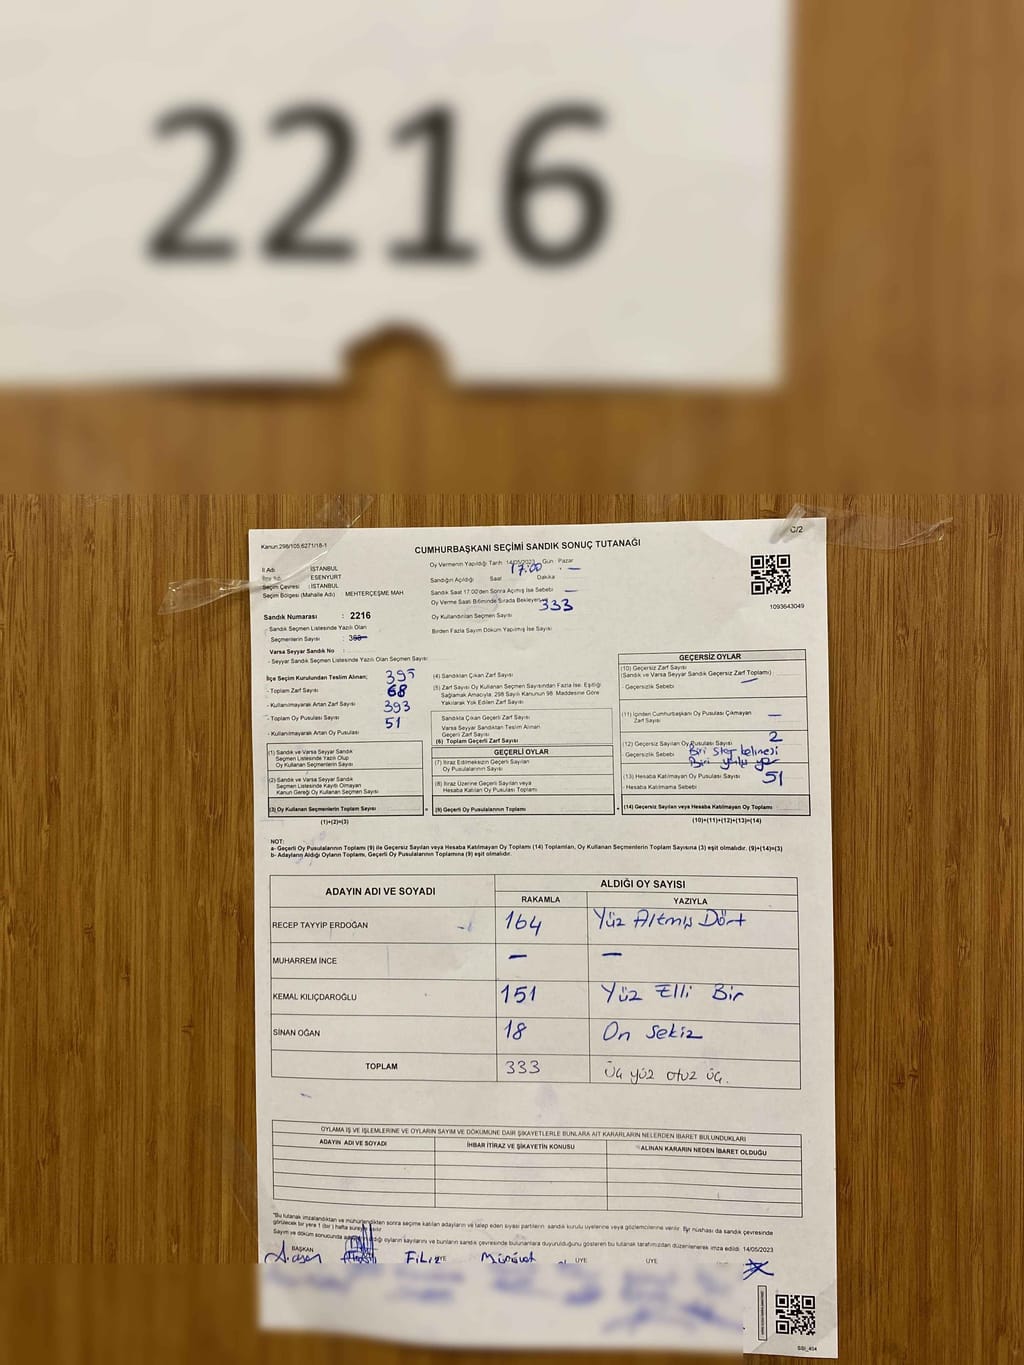 2216
C/2
Kanun,298/105,6271/18-1
CUMHURBAŞKANI SEÇİMİ SANDIK SONUÇ TUTANAĞI
İl Adı : İSTANBUL
İlçe Adı : ESENYURT
Seçim Çevresi : İSTANBUL
Seçim Bölgesi (Mahalle Adı) MEHTERÇEŞME MAH
Sandık Numarası : 2216
- Sandık Seçmen Listesinde Yazılı Olan
Seçmenlerin Sayısı :
Varsa Seyyar Sandık No :
- Seyyar Sandık Seçmen Listesinde Yazılı Olan Seçmen Sayısı:
Oy Vermenin Yapıldığı Tarih 14/05/2023 Gün : Pazar
Sandığın Açıldığı Saat 17:00 Dakika —
Sandık Saat 17:00'den Sonra Açılmış İse Sebebi —
Oy Verme Saati Bitiminde Sırada Bekleyen
Oy Kullandırılan Seçmen Sayısı 333
Birden Fazla Sayım Döküm Yapılmış İse Sayısı
1093643049
İlçe Seçim Kurulundan Teslim Alınan;
- Toplam Zarf Sayısı 395
- Kullanılmayarak Artan Zarf Sayısı 68
- Toplam Oy Pusulası Sayısı 393
- Kullanılmayarak Artan Oy Pusulası 51
(1) Sandık ve Varsa Seyyar Sandık
Seçmen Listesinde Yazılı Olup
Oy Kullanan Seçmenlerin Sayısı
(2) Sandık ve Varsa Seyyar Sandık
Seçmen Listesinde Kayıtlı Olmayan
Kanun Gereği Oy Kullanan Seçmen Sayısı
(3) Oy Kullanan Seçmenlerin Toplam Sayısı
(1)+(2)=(3)
(4) Sandıktan Çıkan Zarf Sayısı
(5) Zarf Sayısı Oy Kullanan Seçmen Sayısından Fazla İse, Eşitliği
Sağlamak Amacıyla, 298 Sayılı Kanunun 98. Maddesine Göre
Yakılarak Yok Edilen Zarf Sayısı
Sandıkta Çıkan Geçerli Zarf Sayısı
Varsa Seyyar Sandıktan Teslim Alınan
Geçerli Zarf Sayısı
(6) Toplam Geçerli Zarf Sayısı
GEÇERLİ OYLAR
(7) İtiraz Edilmeksizin Geçerli Sayılan
Oy Pusulalarının Sayısı
(8) İtiraz Üzerine Geçerli Sayılan veya
Hesaba Katılan Oy Pusulası Toplamı
(9) Geçerli Oy Pusulalarının Toplamı
GEÇERSİZ OYLAR
(10) Geçersiz Zarf Sayısı
(Sandık ve Varsa Seyyar Sandık Geçersiz Zarf Toplamı)
- Geçersizlik Sebebi —
(11) İçinden Cumhurbaşkanı Oy Pusulası Çıkmayan
Zarf Sayısı —
(12) Geçersiz Sayılan Oy Pusulası Sayısı 2
Geçersizlik Sebebi
(13) Hesaba Katılmayan Oy Pusulası Sayısı 51
- Hesaba Katılmama Sebebi
(14) Geçersiz Sayılan veya Hesaba Katılmayan Oy Toplamı
(10)+(11)+(12)+(13)=(14)
NOT:
a- Geçerli Oy Pusulalarının Toplamı (9) ile Geçersiz Sayılan veya Hesaba Katılmayan Oy Toplamı (14) Toplamları, Oy Kullanan Seçmenlerin Toplam Sayısına (3) eşit olmalıdır. (9)+(14)=(3)
b- Adayların Aldığı Oyların Toplamı, Geçerli Oy Pusulalarının Toplamına (9) eşit olmalıdır.
ADAYIN ADI VE SOYADI ALDIĞI OY SAYISI
RAKAMLA YAZIYLA
RECEP TAYYİP ERDOĞAN 164 Yüz Altmış Dört
MUHARREM İNCE — —
KEMAL KILIÇDAROĞLU 151 Yüz Elli Bir
SİNAN OĞAN 18 On Sekiz
TOPLAM 333 üç yüz otuz üç.
OYLAMA İŞ VE İŞLEMLERİNE VE OYLARIN SAYIM VE DÖKÜMÜNE DAİR ŞİKAYETLERLE BUNLARA AİT KARARLARIN NELERDEN İBARET BULUNDUKLARI
ADAYIN ADI VE SOYADI İHBAR İTİRAZ VE ŞİKAYETİN KONUSU ALINAN KARARIN NEDEN İBARET OLDUĞU
*Bu tutanak imzalandıktan ve mühürlendikten sonra seçime katılan adayların ve talep eden siyasi partilerin sandık kurulu üyelerine veya gözlemcilerine verilir. Bir nüshası da sandık çevresinde
görülecek bir yere 1 (bir) hafta süreyle asılır.
Sayım ve döküm sonucunda oyların sayılarını ve bunların sandık çevresinde bulunanlara duyurulduğunu gösteren bu tutanak tarafımızdan düzenlenerek imza edildi. 14/05/2023
BAŞKAN Filiz ÜYE ÜYE ÜYE
SSI_404